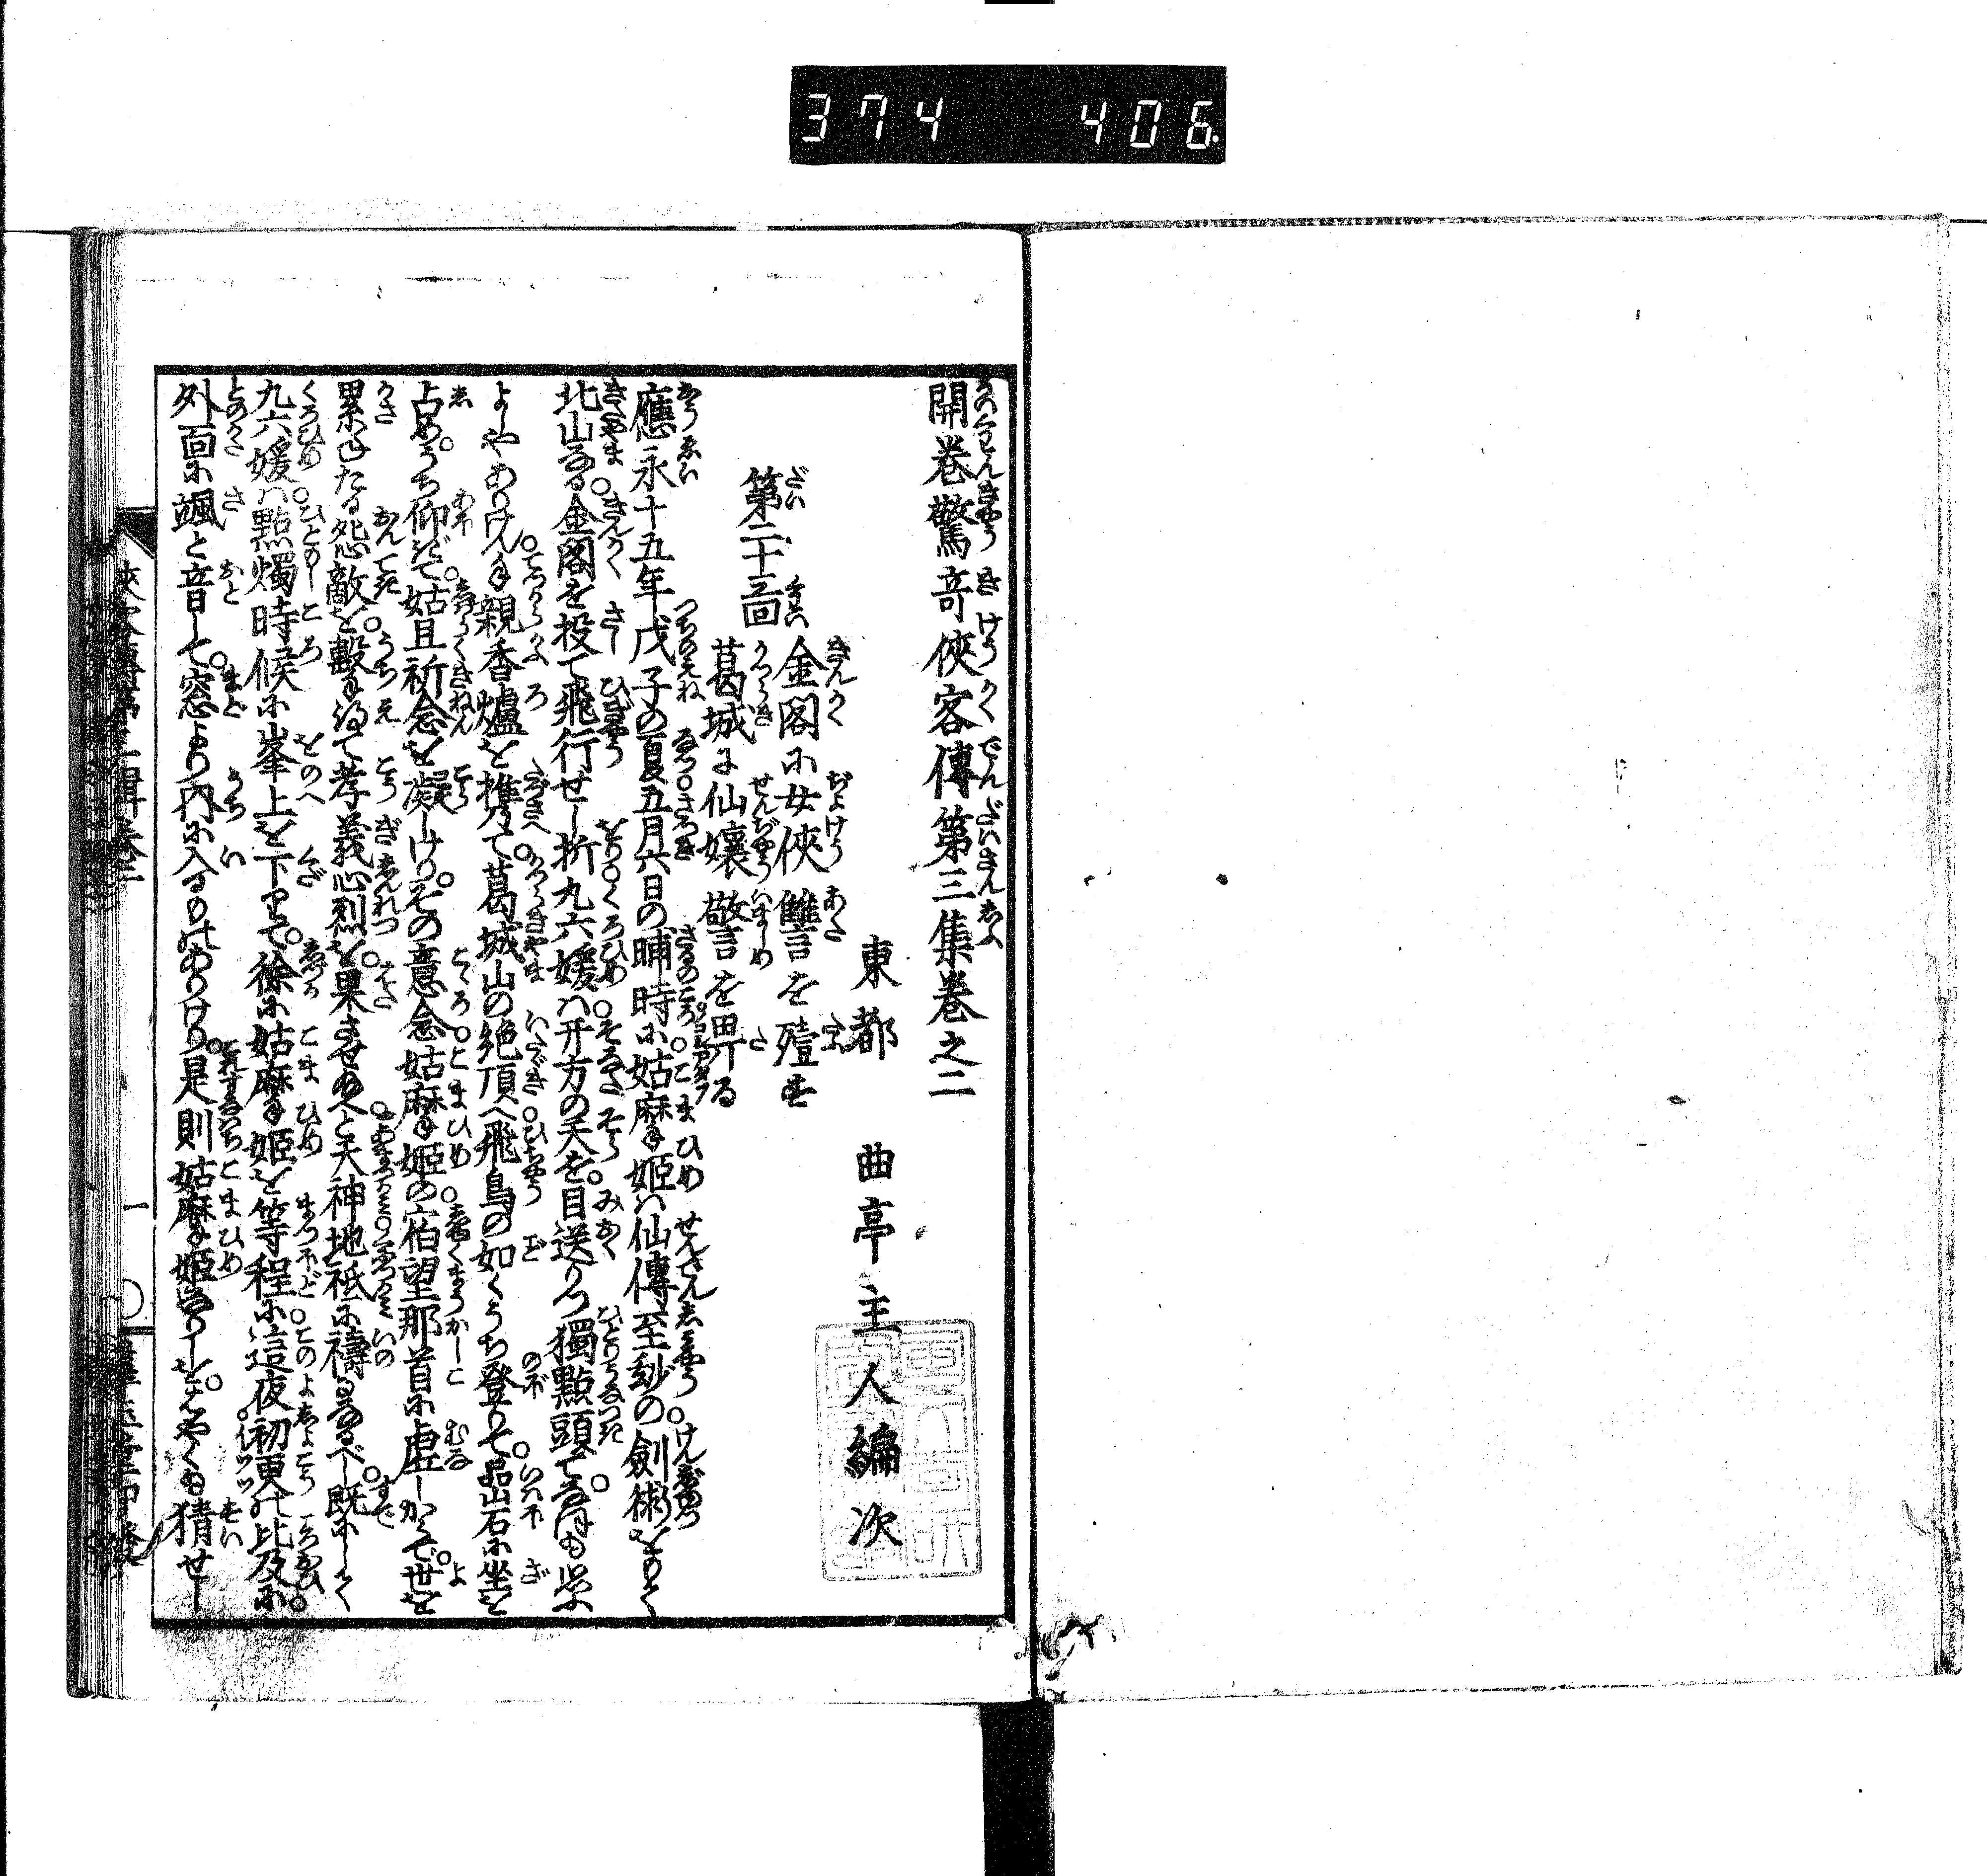 374 406
開巻驚竒俠客傳第三集巻之二
東都 曲亭主人編次
第二十三回
金閣に女俠讐を殪す
葛城に仙嬢警を畀る
應永十五年戊子の夏五月六日の晡時に姑摩姫ハ仙傳至玅の劍術をもて
北山なる金閣を投て飛行せし折九六媛ハ开方の天を目送りつ獨點頭て
よしやありけん親香爐を携て葛城山の絶頂へ飛鳥の如くうち登りて品山石に坐を
占めうち仰ぎて姑且祈念を凝しけりその意念姑摩姫の宿望那首に虚しからで世を
累ねたる怨敵を擊て孝義心烈を果させ給へと天神地祇に禱るなるべし既にして
九六媛ハ點燭時候に峯上を下りて徐に姑摩姫を等程に這夜初更の比及に
外面に颯と音して窓より内に入るものありけり是則姑摩姫なりしを はやくも猜せし